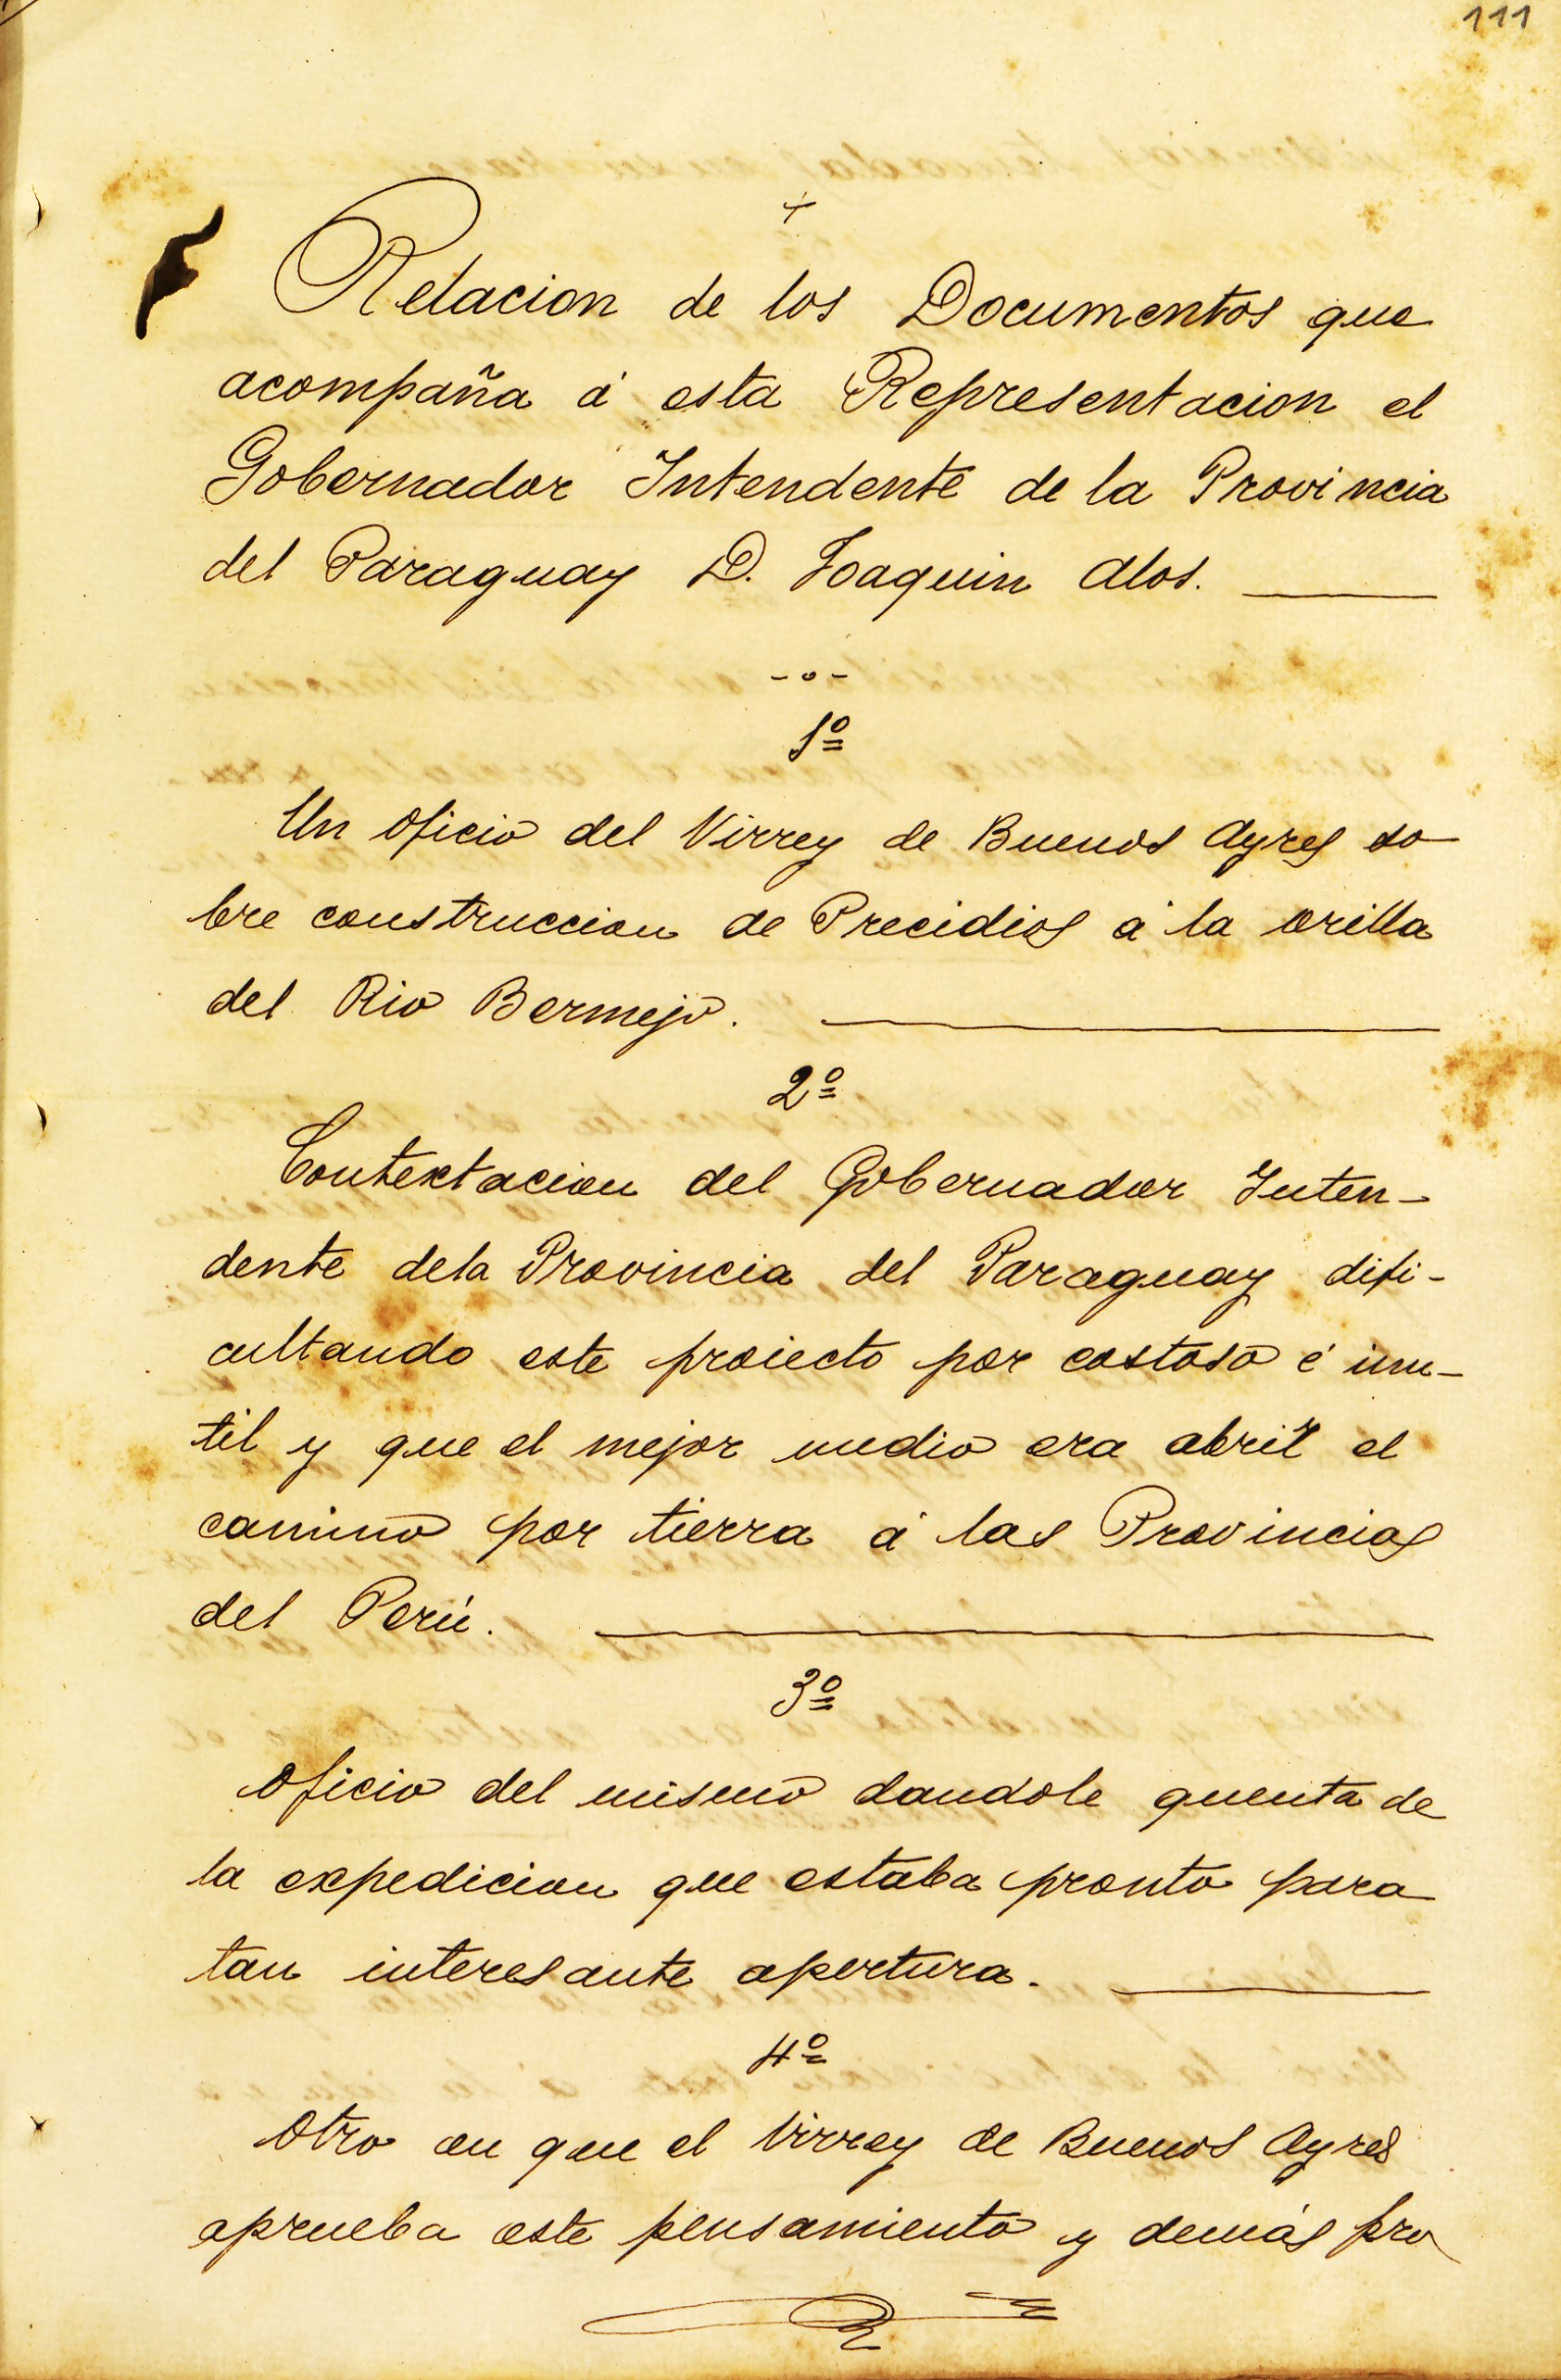 111
+
Relacion de los Documentos que
acompaña á esta Representacion el
Gobernador Intendente de la Provincia
del Paraguay D. Joaquin Alos.
-o-
1º
Un oficio del Virrey de Buenos Ayres so
bre construccion de Precidios á la orilla
del Rio Bermejo.
2º
Contextacion del Gobernador Inten-
dente dela Provincia del Paraguay difi-
cultando este proiecto por costoso é inu-
til y que el mejor medio era abrir el
camino por tierra á las Provincias
del Perú.
3º
Oficio del mismo dandole quenta de
la expedicion que estaba pronto para
tan interesante apertura.
4º
Otro en que el Virrey de Buenos Ayres
aprueba este pensamiento y demás pro